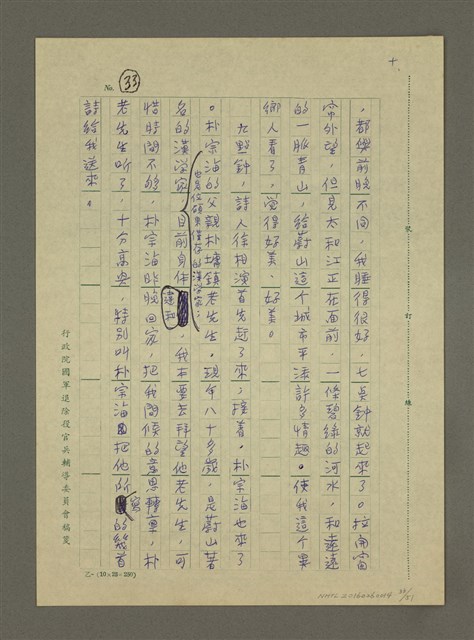 十
No. 33
，都與前晚不同，我睡得很好，七點鐘就起來了。拉開窗
帘外望，但見太和江正在面前，一條碧綠的河水，和遠遠
的一脈青山，給蔚山這個城市平添許多情趣。使我這個異
鄉人看了，覺得好美、好美。
九點鐘，詩人徐相演首先起了來，接着。朴宗海也來了
。朴宗海的父親朴墉鎮老先生。現年八十多歲，是蔚山著
名的漢學家（也是位碩果僅存的漢學家）目前身体違和，我本要去拜望他老先生，可
惜時間不夠，朴宗海昨晚回家，把我問候的意思轉稟，朴
老先生听了，十分高興，特別叫朴宗海把他所寫的幾首
詩給我送來。
裝訂線
行政院國軍退除役官兵輔導委員會稿箋
乙—(10×25=250)
NMTL20160260114
33/51